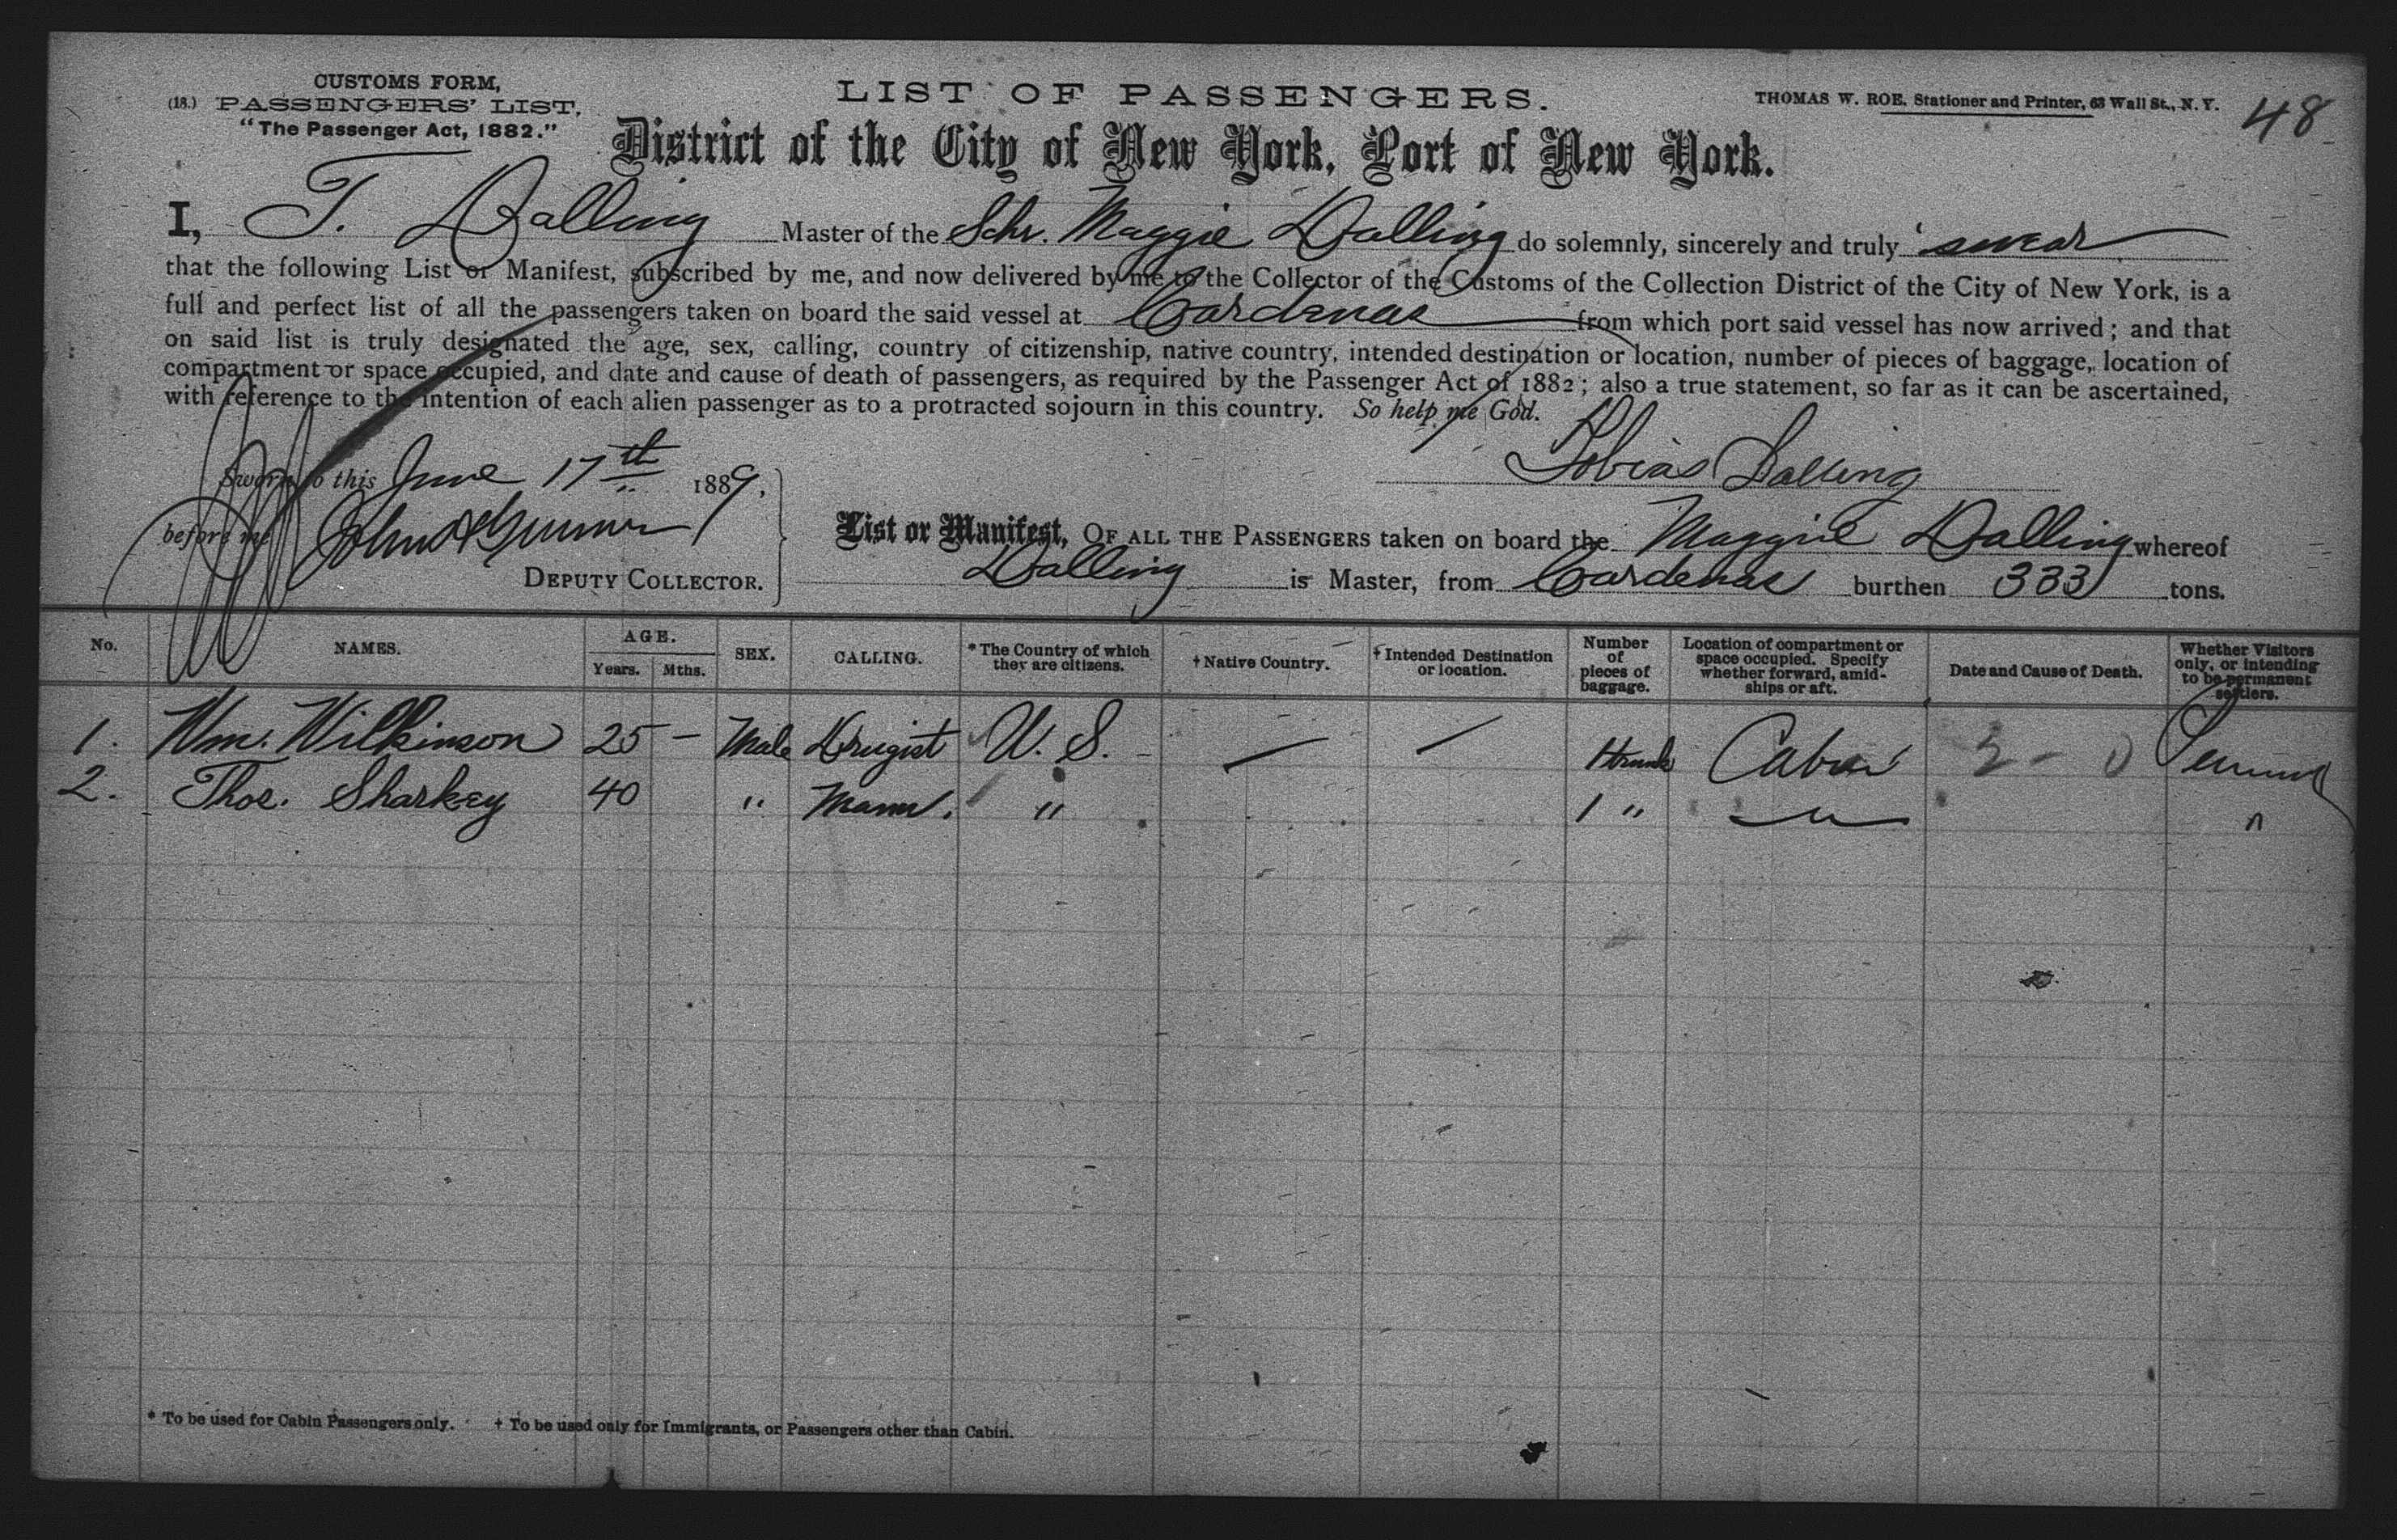 CUSTOMS FORM,
(18.) PASSENGERS' LIST,
"The Passenger Act, 1882."
LIST OF PASSENGERS.
THOMAS W. ROE, Stationer and Printer, 63 Wall St., N. Y.
48
District of the City of New York, Port of New York.
I, T. Dalling Master of the Schr. Maggie Dalling do solemnly, sincerely and truly swear
that the following List or Manifest, subscribed by me, and now delivered by me to the Collector of the Customs of the Collection District of the City of New York, is a
full and perfect list of all the passengers taken on board the said vessel at Cardenas from which port said vessel has now arrived; and that
on said list is truly designated the age, sex, calling, country of citizenship, native country, intended destination or location, number of pieces of baggage, location of
compartment or space occupied, and date and cause of death of passengers, as required by the Passenger Act of 1882; also a true statement, so far as it can be ascertained,
with reference to the intention of each alien passenger as to a protracted sojourn in this country. So help me God.
Tobias Dalling
Sworn to this June 17th 1889,
before me John
DEPUTY COLLECTOR.
List or Manifest, OF ALL THE PASSENGERS taken on board the Maggie Dalling whereof
Dalling is Master, from Cardenas burthen 333 tons.
No. NAMES. AGE. Years. Mths. SEX. CALLING. *The Country of which they are citizens. †Native Country. †Intended Destination or location. Number of pieces of baggage. Location of compartment or space occupied. Specify whether forward, amidships or aft. Date and Cause of Death. Whether Visitors only, or intending to be permanent settlers.
1. Wm. Wilkinson 25 — Male Drugist U. S. — — 1 trunk Cabin
2. Thos. Sharkey 40 " " 1 " "
* To be used for Cabin Passengers only. † To be used only for Immigrants, or Passengers other than Cabin.